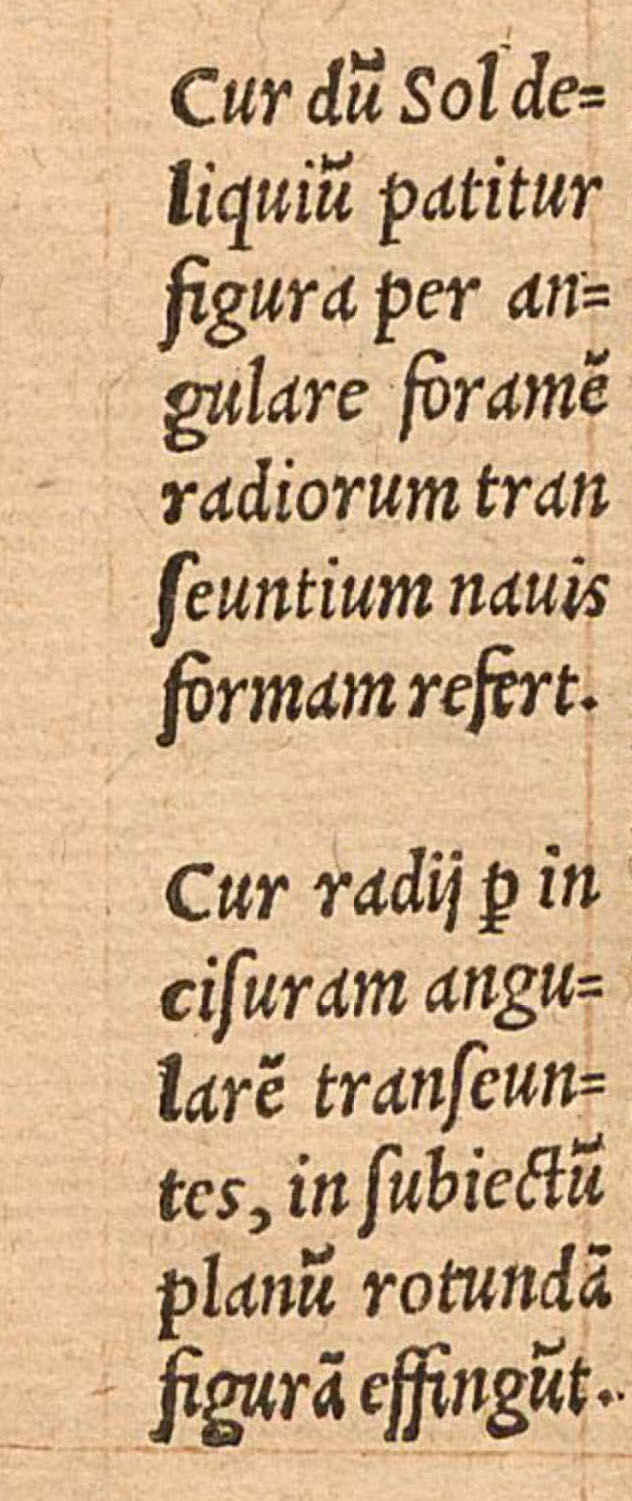 Cur dũ Sol de=
liquiũ patitur
figura per an=
gulare foramẽ
radiorum tran
ſeuntium nauis
formam refert.
Cur radij ꝑ in
ciſuram angu=
larẽ tranſeun=
tes, in ſubiectũ
planũ rotundã
figurã effingũt.